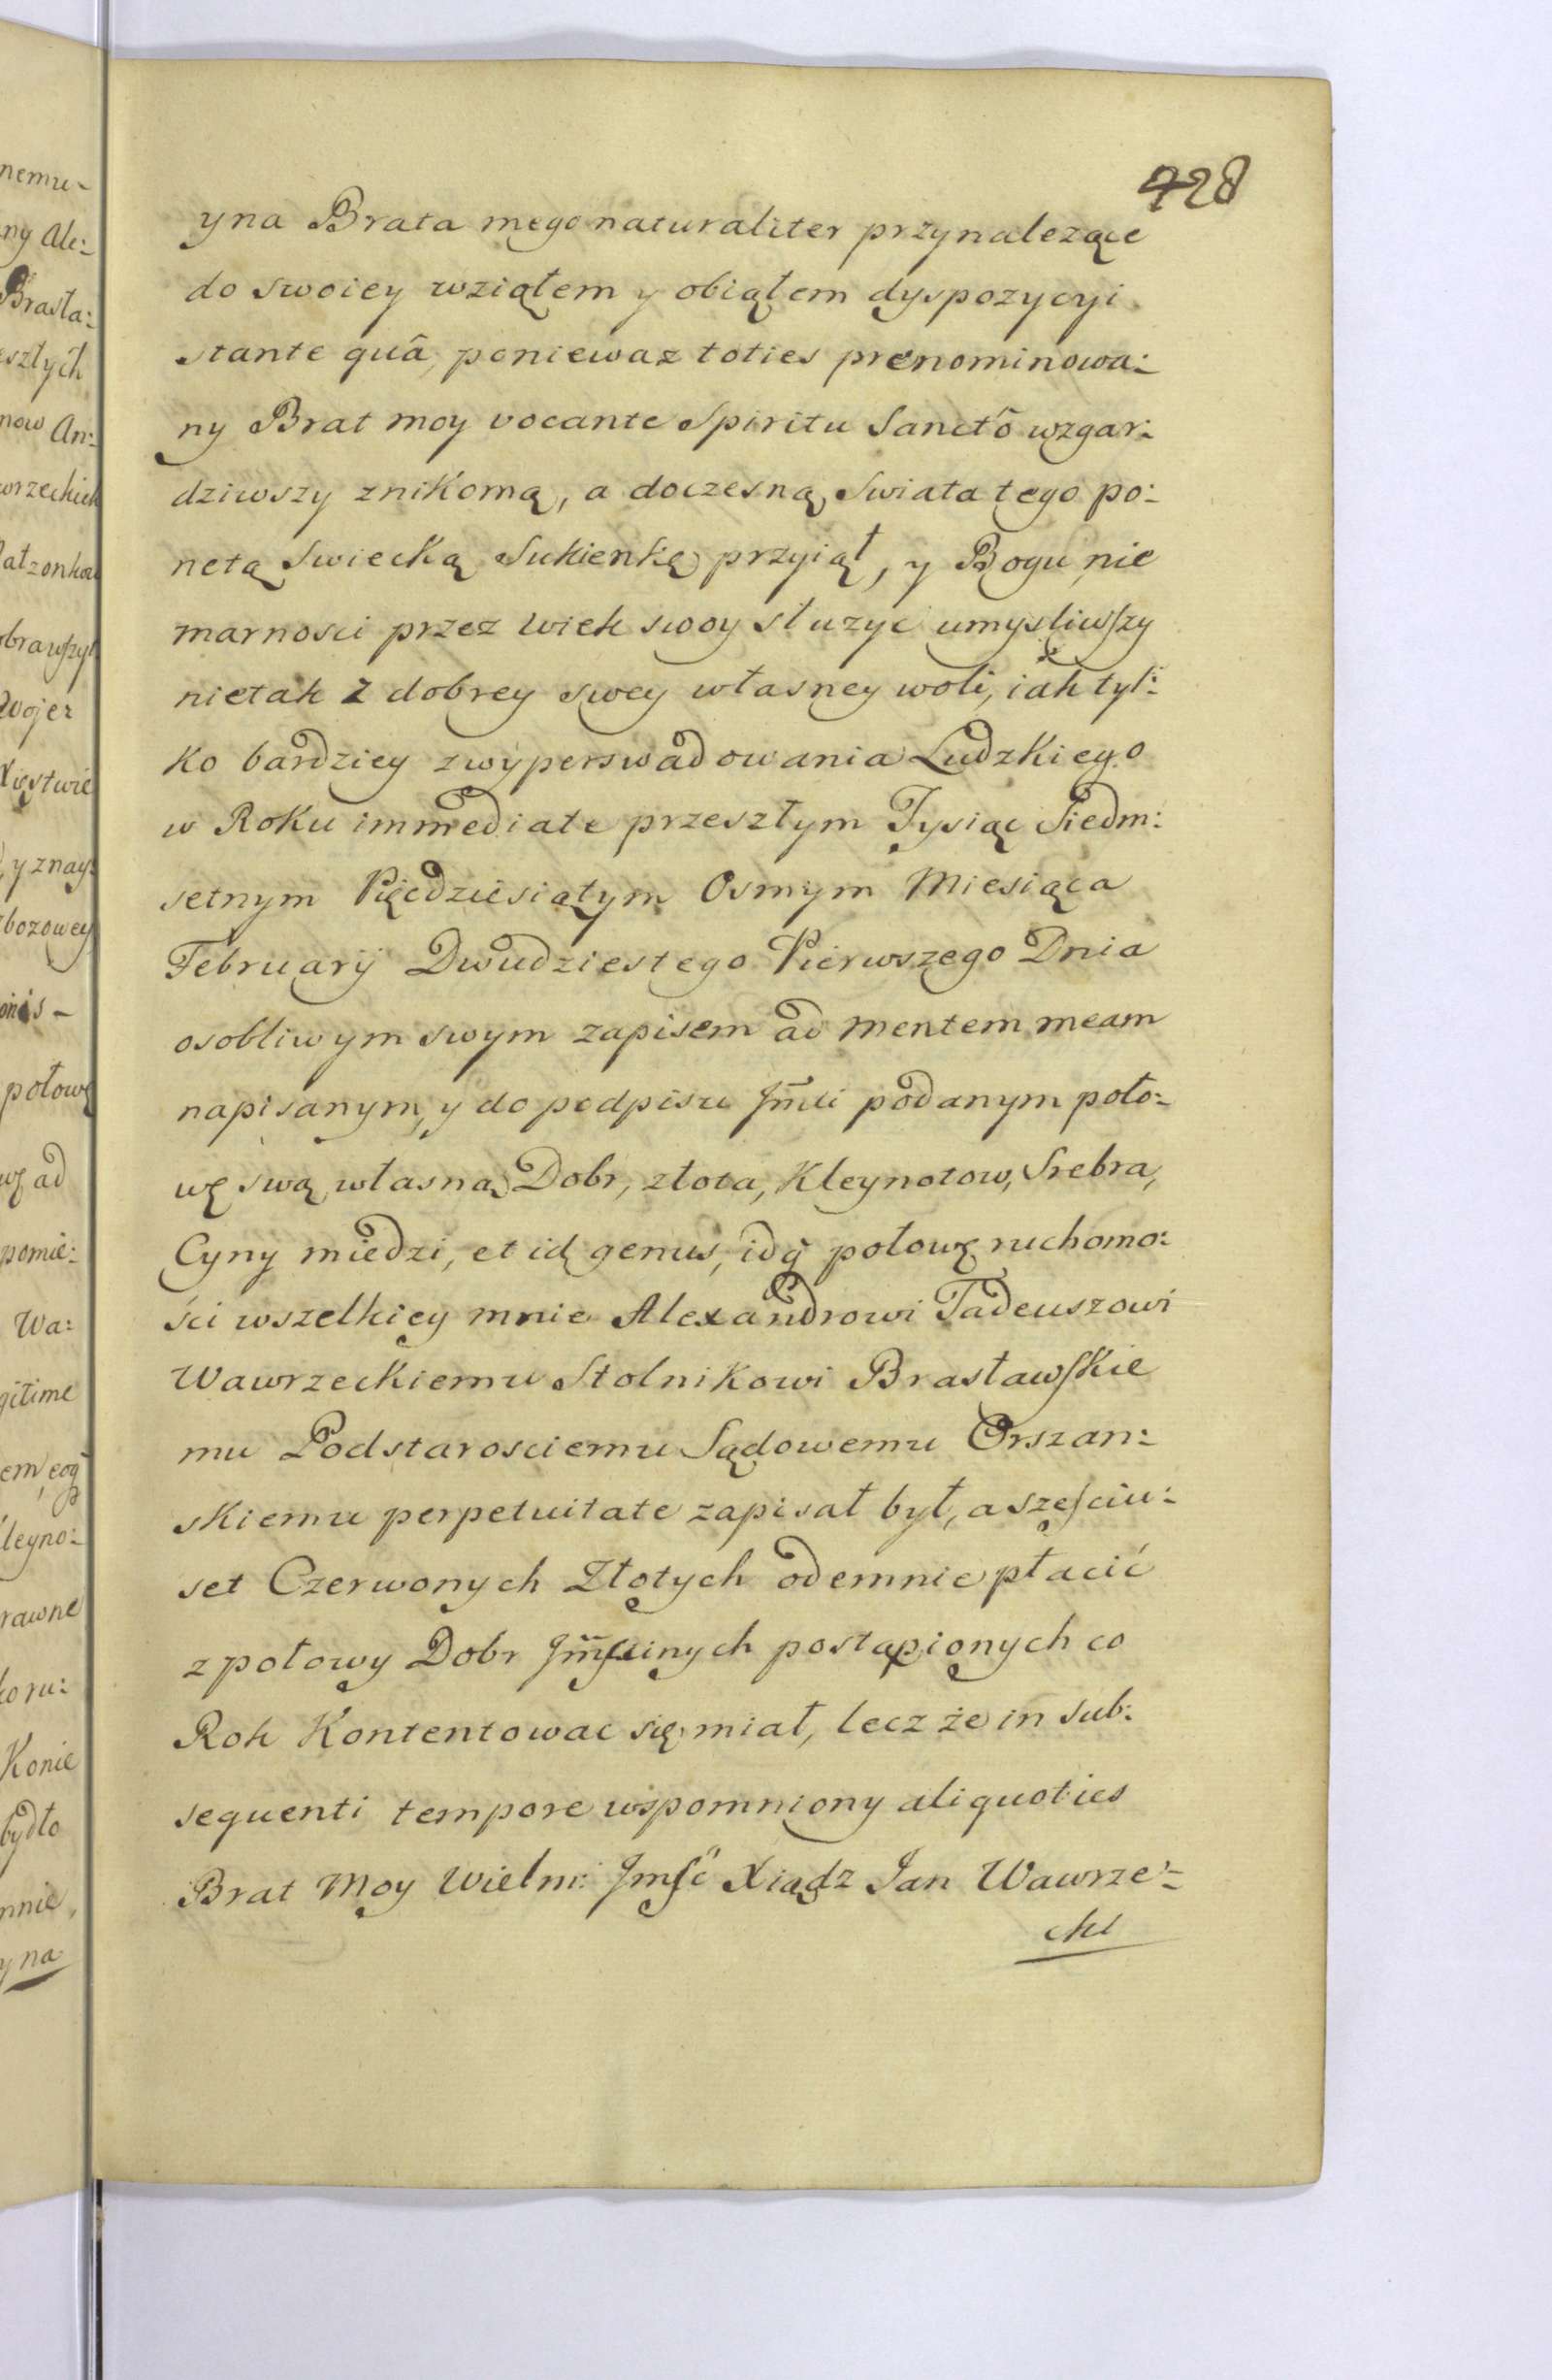 428
y na Brata mego naturaliter przynalezące
do swoiey wziąłem y obiąłem dyspozycyi
stante quâ, poniewaz toties prenominowa:
ny Brat moy vocante Spiritu Sanctô wzgar:
dziwszy znikomą, a doczesną Swiata tego po:
netą Swiecką Sukienkę przyiął, y Bogu nie
marnosci przez wiek swoy służyć umysliwszy
nietak z dobrey swey własney woli, iak tyl:
ko bardziey z wyperswadowania Ludzkiego
w Roku immediate przeszłym Tysiąc Siedm:
setnym Pięcdziesiątym Osmym Miesiąca
Februarij Dwudziestego Pierwszego Dnia
osobliwym swym zapisem ad mentem meam
napisanym, y do podpisu Jm̃ci podanym poło:
wę swą własną Dobr, złota, Kleynotow, Srebra,
Cyny miedzi, et id genus, idq̃ połowę ruchomo:
ści wszelkiey mnie Alexandrowi Tadeuszowi
Wawrzeckiemu Stolnikowi Brasławskie
mu Podstarosciemu Sądowemu Orszan:
skiemu perpetuitate zapisał był, a sześciu:
set Czerwonych Złotych odemnie płacić
z połowy Dobr Jm̃scinych postąpionych co
Rok Kontentowac się miał, lecz że in sub:
sequenti tempore wspomniony aliquoties
Brat Moy Wielm: Jmść Xiądz Jan Wawrze:
cki
nemu-
ny Ale:
Brasła:
eszłych
now An:
wrzeckich
ałzonkow
obrawszy
Wojez
Xięstwie
y znay:
bozowey
onis -
połowę
wę ad
pomie:
Wa:
gitime
em, eoq̃
leyno:
rawne
ko ru:
Konie
bydło
mnie,
y na